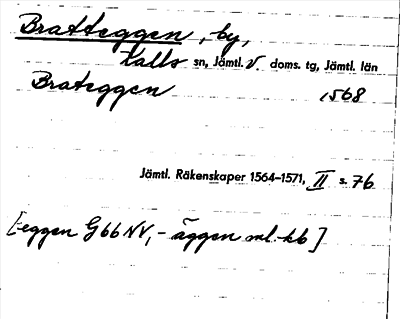 Bratteggen, by,
Kalls sn, Jämtl. V. doms. tg, Jämtl. län
Brateggen 1568
Jämtl. Räkenskaper 1564–1571, II s. 76
[-eggen G66 NV, - äggen ml. kb]